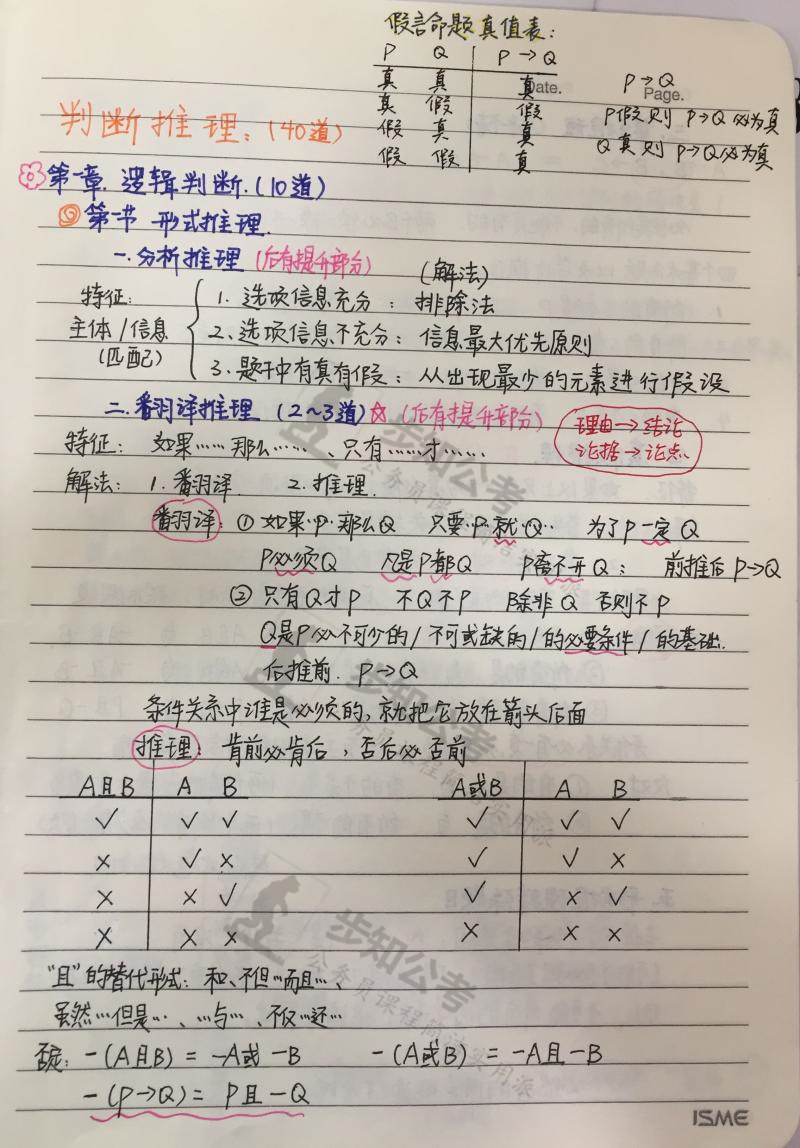 假言命题真值表：
P Q P→Q
真 真 真 Date. P→Q Page.
真 假 假 P假则 P→Q必为真
假 真 真 Q真则 P→Q必为真
假 假 真
判断推理：(40道)
第一章. 逻辑判断. (10道)
第一节 形式推理.
一. 分析推理 (后有提升部分) (解法)
特征： 1. 选项信息充分： 排除法
主体/信息 2. 选项信息不充分： 信息最大优先原则
(匹配) 3. 题干中有真有假： 从出现最少的元素进行假设
二. 翻译推理 (2~3道) ☆ (后有提升部分) 理由→结论
特征： 如果……那么……、只有……才…… 论据→论点
解法： 1. 翻译. 2. 推理.
翻译： ① 如果·P·那么Q 只要·P·就·Q… 为了P一定Q
P必须Q 凡是P都Q P离不开Q； 前推后 P→Q
② 只有Q才P 不Q不P 除非Q 否则不P
Q是P必不可少的/不可或缺的/的必要条件/的基础.
后推前. P→Q
条件关系中谁是必须的，就把它放在箭头后面
推理： 肯前必肯后，否后必否前
A且B A B A或B A B
✓ ✓ ✓ ✓ ✓ ✓
× ✓ × ✓ ✓ ×
× × ✓ ✓ × ✓
× × × × × ×
"且"的替代形式：和、不但…而且…、
虽然…但是…、…与…、不仅…还…
否定：－(A且B) = －A或－B －(A或B) = －A且－B
－(P→Q) = P且－Q
ISME
步知公考
公务员课程简洁实用派
步知公考
步知公考
公务员课程简洁实用派